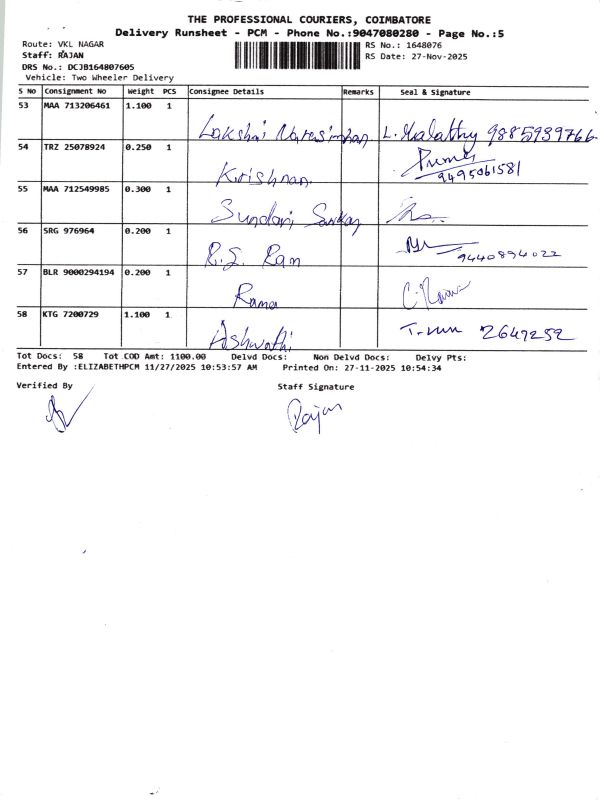 THE PROFESSIONAL COURIERS, COIMBATORE
Delivery Runsheet - PCM - Phone No.:9047080280 - Page No.:5
Route: VKL NAGAR
Staff: RAJAN
DRS No.: DCJB164807605
Vehicle: Two Wheeler Delivery
RS No.: 1648076
RS Date: 27-Nov-2025
S No Consignment No Weight PCS Consignee Details Remarks Seal & Signature
53 MAA 713206461 1.100 1
Lakshmi Narasimhan L. Malathy 9885939766
54 TRZ 25078924 0.250 1
Krishnan 9495061581
55 MAA 712549985 0.300 1
Sundari Sankar
56 SRG 976964 0.200 1
R.S. Ram 9440894022
57 BLR 9000294194 0.200 1
Rama C. Rama
58 KTG 7200729 1.100 1
Ashwathi 2649252
Tot Docs: 58 Tot COD Amt: 1100.00 Delvd Docs: Non Delvd Docs: Delvy Pts:
Entered By :ELIZABETHPCM 11/27/2025 10:53:57 AM Printed On: 27-11-2025 10:54:34
Verified By Staff Signature
Rajan